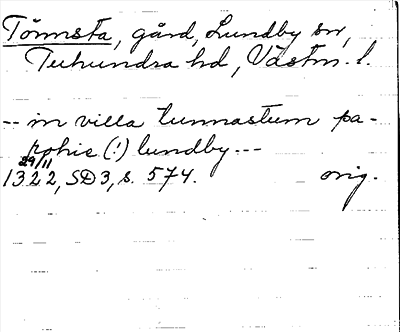 Tömsta, gård, Lundby sn,
Tuhundra hd, Västm. l.
-- in villa tunnastum pa-
rohie (!) lundby ---
29/11
1322, SD3, s. 574. orig.